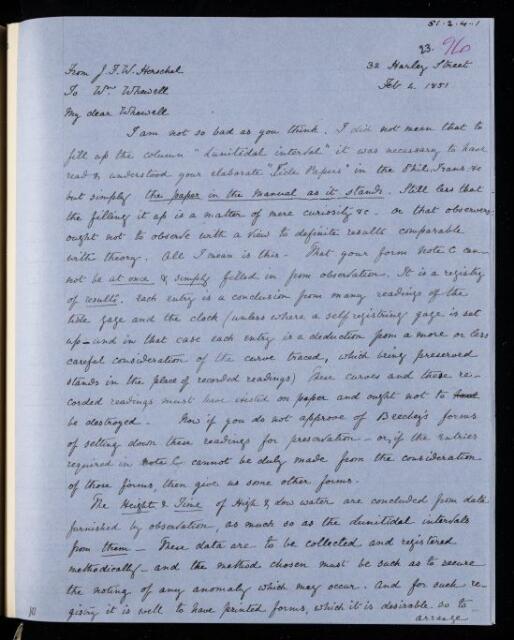 51.2.4.1
23. 96
From J. F. W. Herschel
32 Harley Street
To Wm Whewell
Feb 4. 1851
My dear Whewell
I am not so bad as you think. I did not mean that to
fill up the column "lunitidal interval" it was necessary to have
read & understood your elaborate "Tide Papers" in the Phil. Trans. &c
but simply the paper in the Manual as it stands. Still less that
the filling it up is a matter of mere curiosity &c. or that observers
ought not to observe with a view to definite results comparable
with theory. All I mean is this. That your form Note C can-
not be at once & simply filled in from observation. It is a registry
of results. Each entry is a conclusion from many readings of the
tide gage and the clock (unless where a self registering gage is set
up - and in that case each entry is a deduction from a more or less
careful consideration of the curve traced, which being preserved
stands in the place of recorded readings) These curves and these re-
corded readings must have existed on paper and ought not to have
be destroyed. Now if you do not approve of Beechey's forms
of setting down these readings for preservation - or, if the entries
required in Note C cannot be duly made from the consideration
of those forms then give us some other forms.
The Height & Time of High & Low water are concluded from data
furnished by observation, as much so as the lunitidal intervals
from them - These data are to be collected and registered
methodically - and the method chosen must be such as to secure
the noting of any anomaly which may occur. And for such re-
gistry it is well to have printed forms, which it is desirable so to
arrange